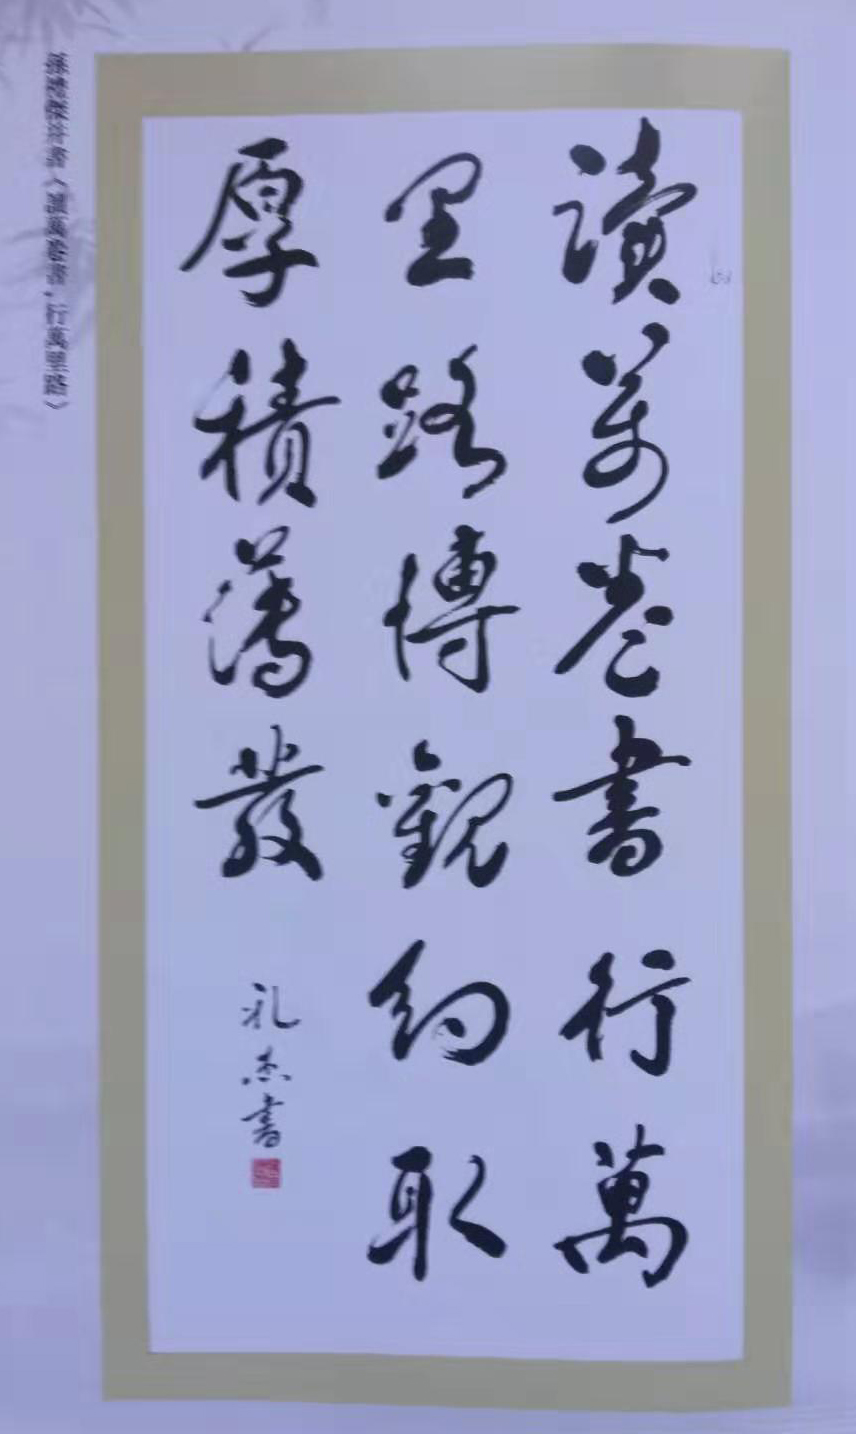 讀萬卷書行萬
里路博觀約取
厚積薄發
礼杰書
孫禮傑行書《讀萬卷書,行萬里路》